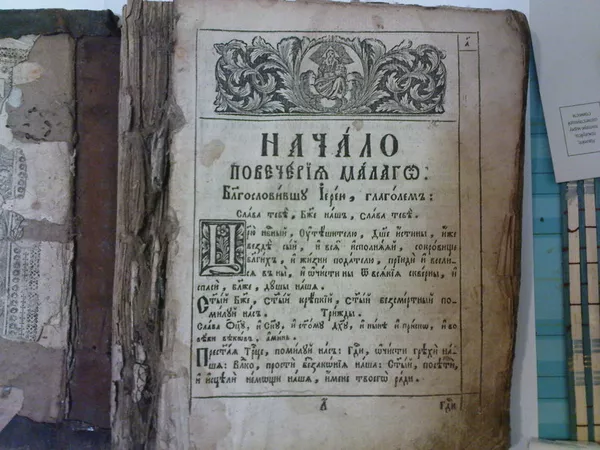 НАЧА́ЛО
ПОВЕЧЕ́РЇѦ МА́ЛАГѠ:
Бл҃гослови́вшу І҆ере́ю, глаго́лемъ:
Сла́ва тебѣ̀, Бж҃е на́шъ, сла́ва тебѣ̀.
Цр҃ю нбⷭ҇ный, ᲂу҆тѣ́шителю, Дш҃е и҆́стины, и҆́же
вездѣ̀ сы́й, и҆ всѧ̑ и҆сполнѧ́ѧй, сокро́вище
бл҃ги́хъ, и҆ жи́зни пода́телю, прїидѝ и҆ всели́-
сѧ въ ны̀, и҆ ѡ҆чи́сти ны̀ ѿ всѧ́кїѧ скве́рны, и҆
спасѝ, бл҃же, ду́шы на́шѧ.
Ст҃ы́й Бж҃е, ст҃ы́й крѣ́пкїй, ст҃ы́й безсме́ртный по-
ми́луй на́съ. Три́жды.
Сла́ва Ѻ҆ц҃у̀, и҆ Сн҃у, и҆ ст҃о́му Дх҃у, и҆ ны́нѣ и҆ при́снѡ, и҆ во
вѣ́ки вѣкѡ́въ, а҆ми́нь.
Прест҃а́ѧ Трⷪ҇це, поми́луй на́съ: Гдⷭ҇и, ѡ҆чи́сти грѣхѝ на́-
шѧ: Влⷣко, простѝ беззакѡ́нїѧ на̑ша: Ст҃ы́й, посѣтѝ,
и҆ и҆сцѣлѝ не́мѡщи на́шѧ, и҆́мене твоегѡ̀ ра́ди.
Гдⷭ҇и